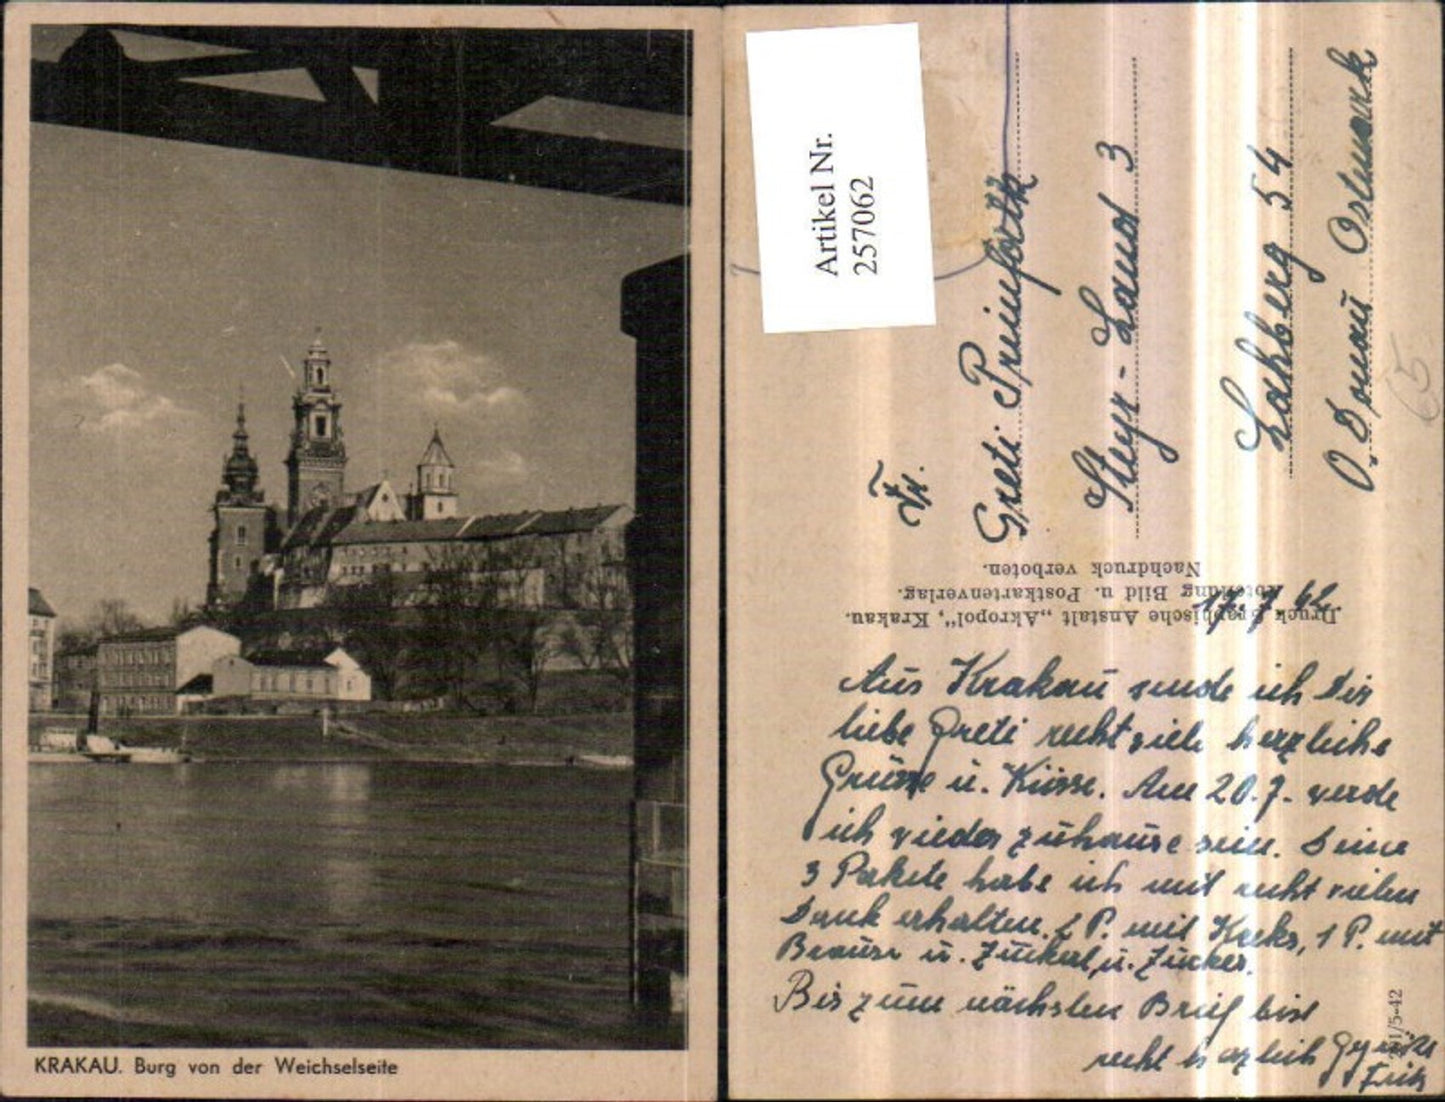 KRAKAU. Burg von der Weichselseite
Artikel Nr.
257062
Fr.
Greti
Steyr-Land 3
54
O Donau Ostmark
65
Druck Graphische Anstalt „Akropol", Krakau.
Abteilung Bild u. Postkartenverlag.
Nachdruck verboten.
17. 7 42
Aus Krakau sende ich Dir
liebe Greti recht viele herzliche
Grüsse u. Küsse. Am 20.7. werde
ich wieder zuhause sein. Deine
3 Pakete habe ich mit recht vielen
Dank erhalten. 1 P. mit Keks, 1 P. mit
Brause u. u. Zucker.
Bis zum nächsten Brief bist
recht herzlich
Fritz
1/5-42